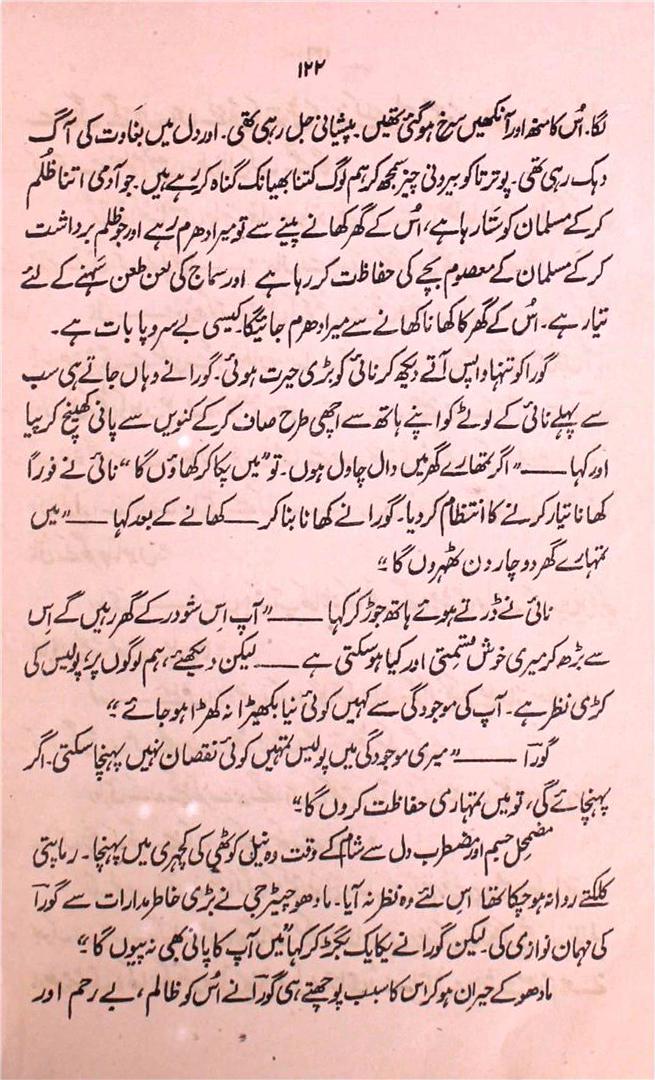 ۱۲۲
لگا۔ اُس کا منھ اور آنکھیں سرخ ہوگئی تھیں۔ پیشانی جل رہی تھی۔ اور دل میں بغاوت کی آگ
دہک رہی تھی۔ پوترتا کو بیرونی چیز سمجھ کر ہم لوگ کتنا بھیانک گناہ کر رہے ہیں۔ جو آدمی اتنا ظلم
کرکے مسلمان کو ستا رہا ہے، اُس کے گھر کھانے پینے سے تو میرا دھرم رہے اور جو ظلم برداشت
کرکے مسلمان کے معصوم بچے کی حفاظت کر رہا ہے اور سماج کی لعن طعن سَہنے کے لئے
تیار ہے۔ اُس کے گھر کا کھانا کھانے سے میرا دھرم جائیگا۔ کیسی بے سروپا بات ہے۔
گورا کو تنہا واپس آتے دیکھ کر نائی کو بڑی حیرت ہوئی۔ گورا نے وہاں جاتے ہی سب
سے پہلے نائی کے لوٹے کو اپنے ہاتھ سے اچھی طرح صاف کرکے کنویں سے پانی کھینچ کر پیا
اور کہا ——— ”اگر تمھارے گھر میں دال چاول ہوں۔ تو میں پکا کر کھاؤں گا“ نائی نے فوراً
کھانا تیار کرنے کا انتظام کر دیا۔ گورا نے کھانا بنا کر —— کھانے کے بعد کہا —— ”میں
تمہارے گھر دو چار دن ٹھہروں گا“
نائی نے ڈرتے ہوئے ہاتھ جوڑ کر کہا ——— ”آپ اِس شودر کے گھر رہیں گے اِس
سے بڑھ کر میری خوش قسمتی اور کیا ہو سکتی ہے —— لیکن دیکھئے، ہم لوگوں پر، پولیس کی
کڑی نظر ہے۔ آپ کی موجودگی سے کہیں کوئی نیا بکھیڑا نہ کھڑا ہو جائے“
گورا ——— ”میری موجودگی میں پولیس تمہیں کوئی نقصان نہیں پہنچا سکتی۔ اگر
پہنچائے گی، تو میں تمہاری حفاظت کروں گا“
مضمحل جسم اور مضطرب دل سے شام کے وقت وہ نیل کوٹھی کی کچہری میں پہنچا۔ رماپتی
کلکتے روانہ ہو چکا تھا اس لئے وہ نظر نہ آیا۔ مادھو چیٹرجی نے بڑی خاطر مدارات سے گورا
کی مہمان نوازی کی۔ لیکن گورا نے یکایک بگڑ کر کہا ”میں آپ کا پانی بھی نہ پیوں گا“
مادھو کے حیران ہو کر اس کا سبب پوچھتے ہی گورا نے اُس کو ظالم، بے رحم اور